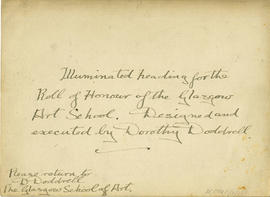 Illuminated heading for the
Roll of Honour of the Glasgow
Art School. Designed and
executed by Dorothy Doddrell
Please return to
D. Doddrell
The Glasgow School of Art.